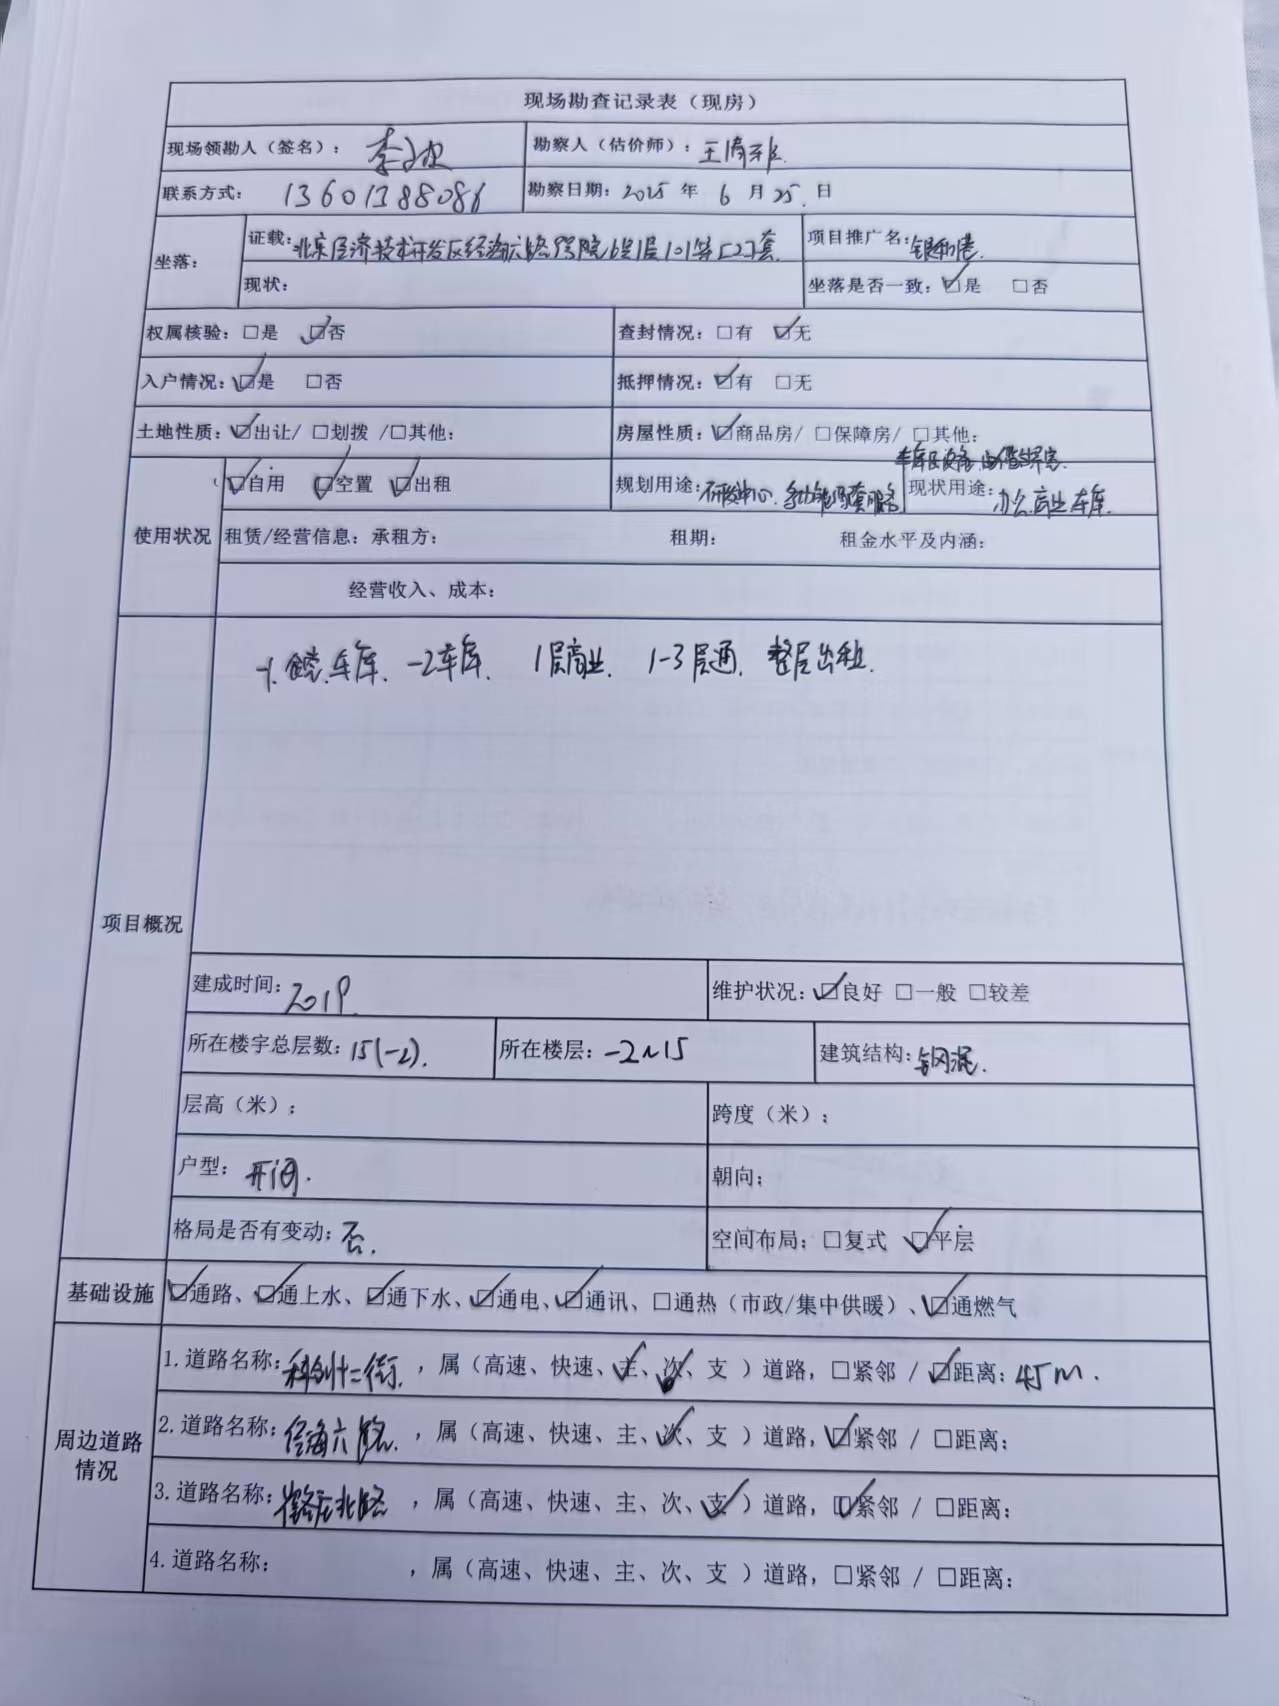 现场勘查记录表（现房）
现场领勘人（签名）： 李 勘察人（估价师）：王
联系方式： 13601388086 勘察日期：2025 年 6 月 25 日
坐落： 证载：北京经济技术开发区经海六路 号院6号1层101等 套 项目推广名：
现状： 坐落是否一致：☑是 □否
权属核验：□是 ☑否 查封情况：□有 ☑无
入户情况：☑是 □否 抵押情况：☑有 □无
土地性质：☑出让/ □划拨 /□其他： 房屋性质：☑商品房/ □保障房/ □其他：
车库
使用状况 ☑自用 ☑空置 ☑出租 规划用途：研发中心、多功能 配套服务 现状用途：办公、商业、车库
租赁/经营信息：承租方： 租期： 租金水平及内涵：
经营收入、成本：
项目概况 -1. 食堂、车库、 -2车库、 1层商业、 1-3层通、 整层出租.
建成时间：2019. 维护状况：☑良好 □一般 □较差
所在楼宇总层数：15(-2). 所在楼层：-2~15 建筑结构：钢混.
层高（米）： 跨度（米）：
户型： 开间. 朝向：
格局是否有变动：否. 空间布局：□复式 ☑平层
基础设施 ☑通路、☑通上水、☑通下水、☑通电、☑通讯、□通热（市政/集中供暖）、☑通燃气
周边道路情况 1.道路名称：科创十二街. ，属（高速、快速、主、次、支 ）道路，□紧邻 / ☑距离：45m.
2.道路名称：经海六路. ，属（高速、快速、主、次、支 ）道路，☑紧邻 / □距离：
3.道路名称： 北路 ，属（高速、快速、主、次、支 ）道路，☑紧邻 / □距离：
4.道路名称： ，属（高速、快速、主、次、支 ）道路，□紧邻 / □距离：